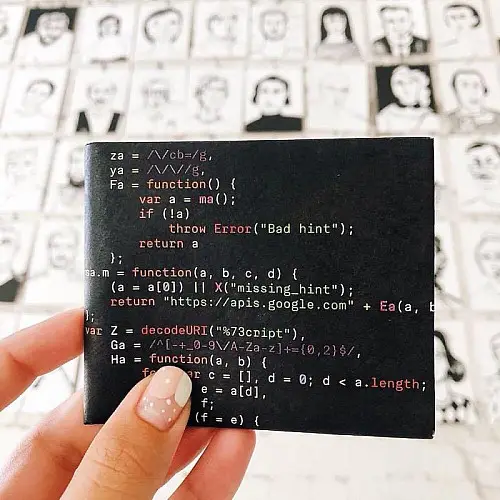 za = /\/cb=/g,
ya = /\/\//g,
Fa = function() {
var a = ma();
if (!a)
throw Error("Bad hint");
return a
};
sa.m = function(a, b, c, d) {
(a = a[0]) || X("missing_hint");
return "https://apis.google.com" + Ea(a, b
};
var Z = decodeURI("%73cript"),
Ga = /^[-+_0-9\/A-Za-z]+={0,2}$/,
Ha = function(a, b) {
c = [], d = 0; d < a.length;
e = a[d],
f;
(f = e) {